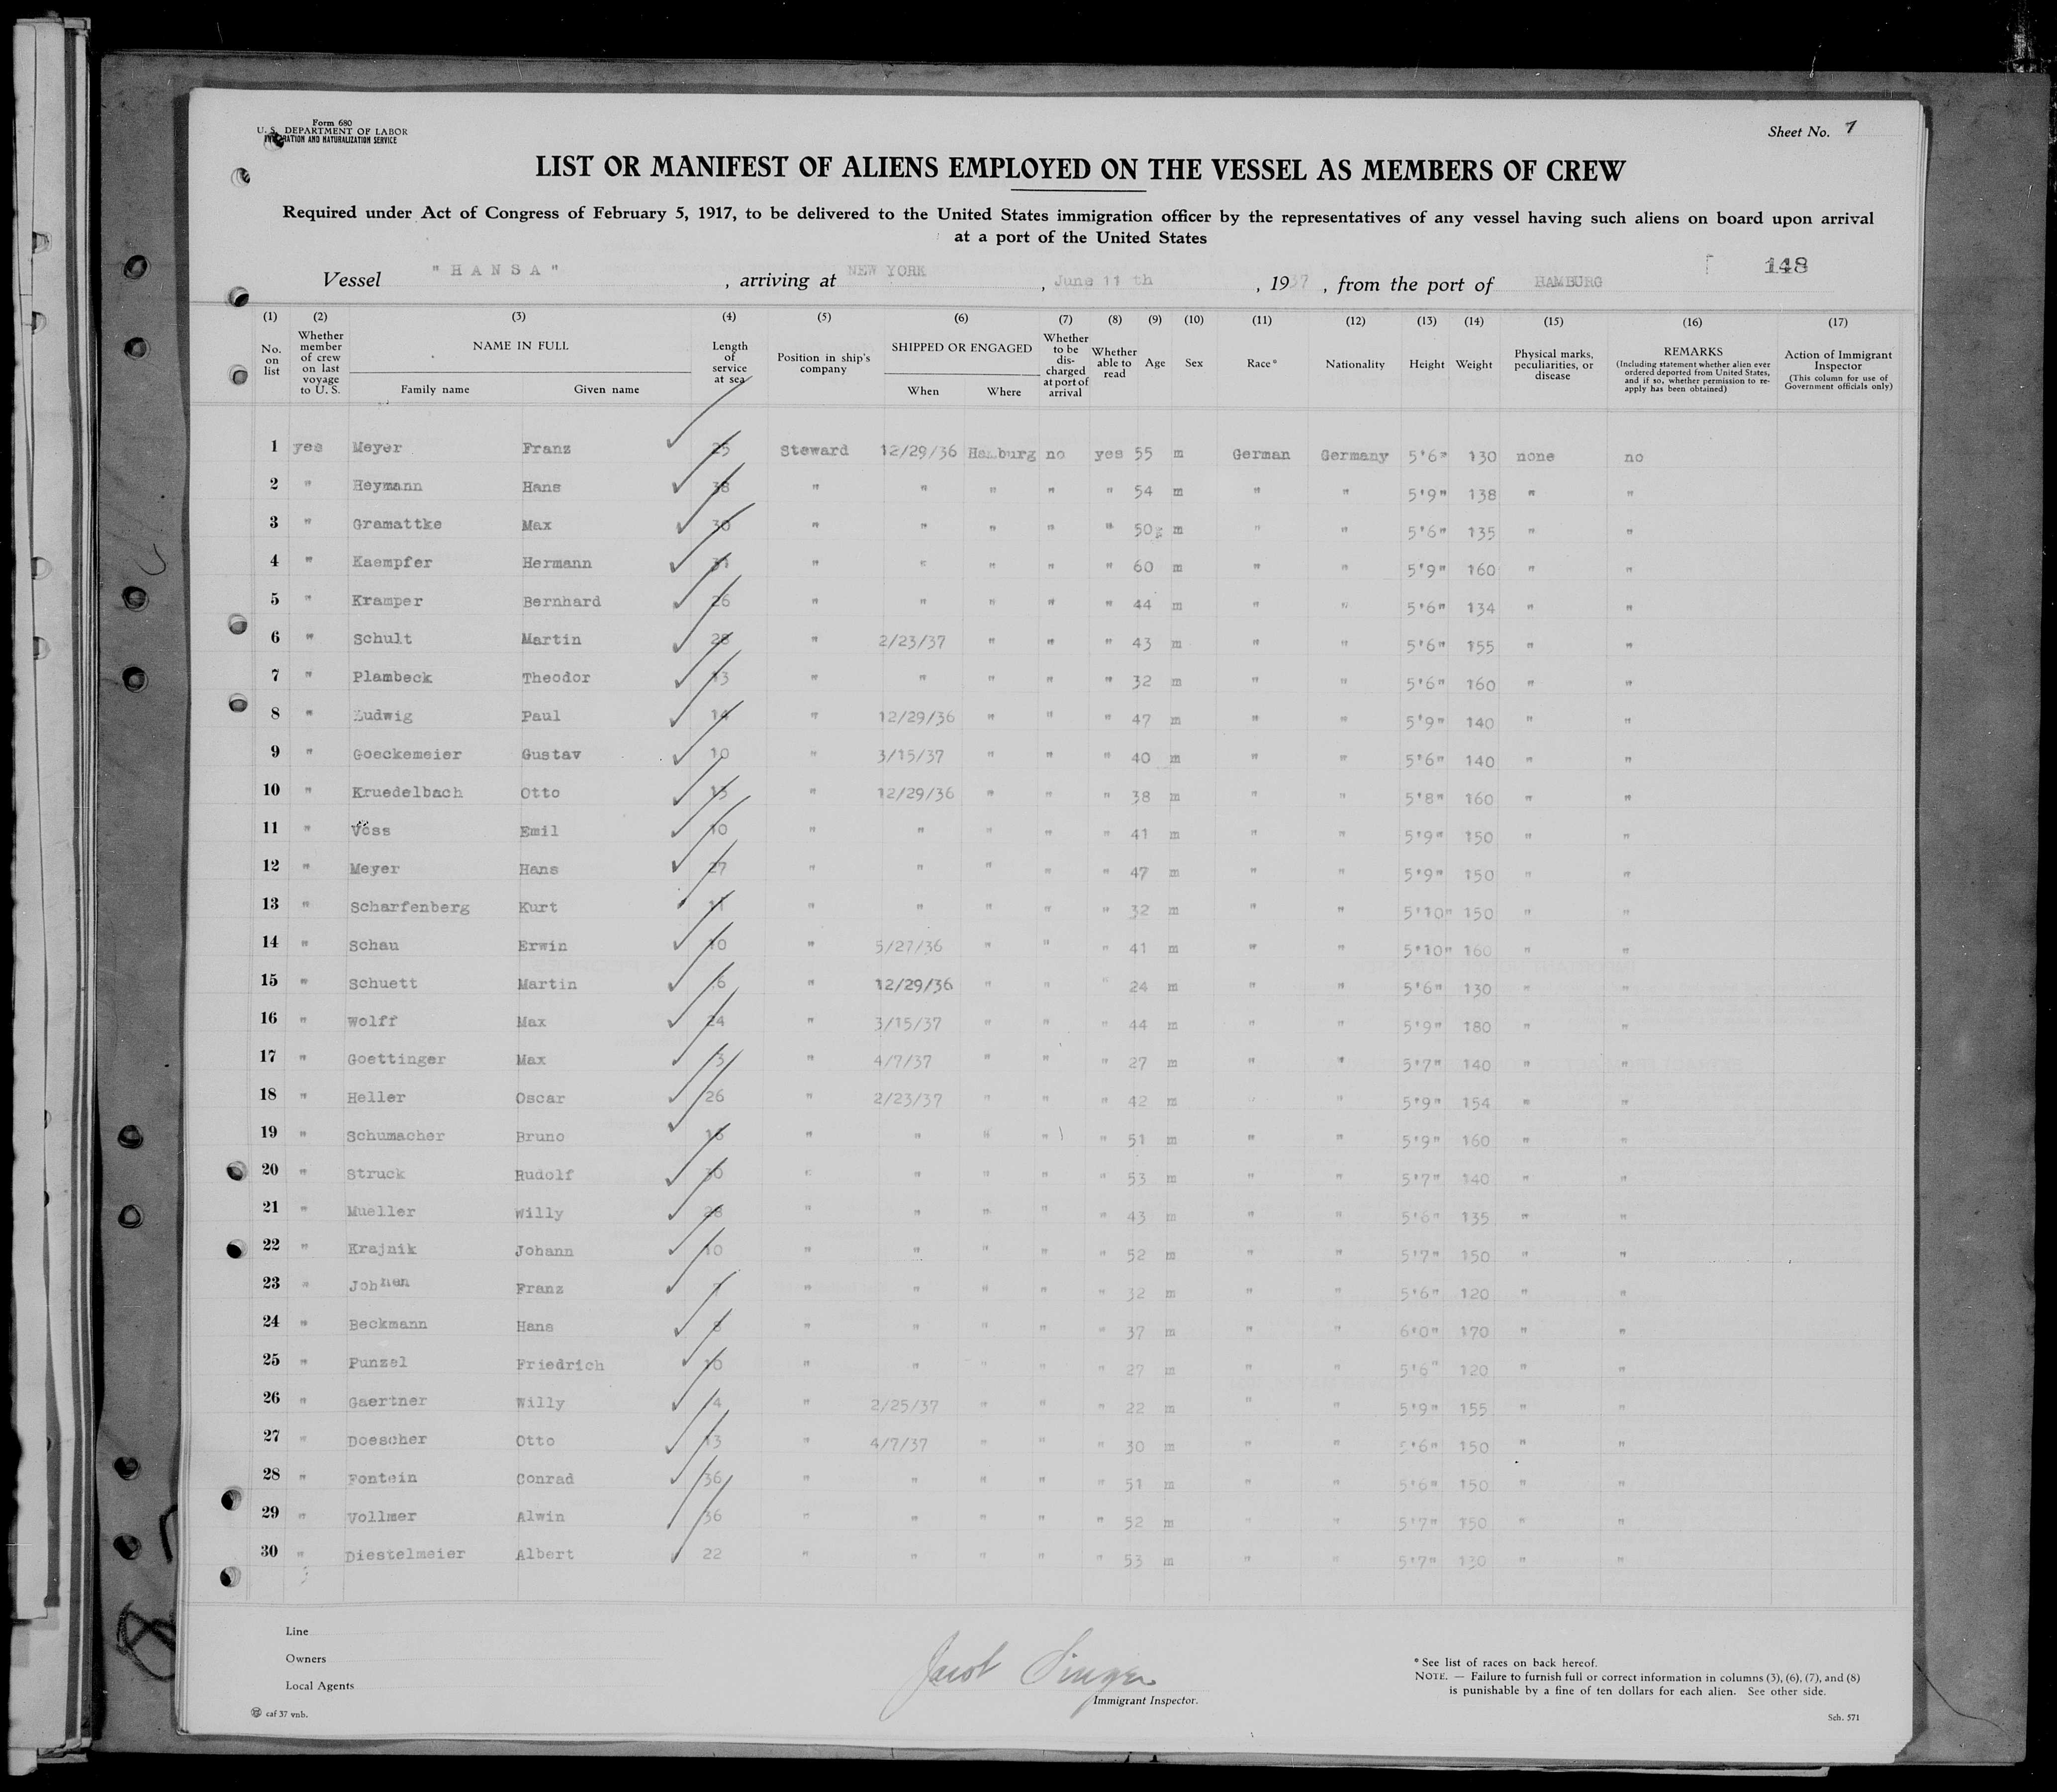 Form 680
U. S. DEPARTMENT OF LABOR
IMMIGRATION AND NATURALIZATION SERVICE
Sheet No. 7
LIST OR MANIFEST OF ALIENS EMPLOYED ON THE VESSEL AS MEMBERS OF CREW
Required under Act of Congress of February 5, 1917, to be delivered to the United States immigration officer by the representatives of any vessel having such aliens on board upon arrival
at a port of the United States
148
Vessel "HANSA", arriving at NEW YORK, June 11 th, 1937, from the port of HAMBURG
(1) (2) (3) (4) (5) (6) (7) (8) (9) (10) (11) (12) (13) (14) (15) (16) (17)
No. on list
Whether member of crew on last voyage to U. S.
NAME IN FULL
Family name Given name
Length of service at sea
Position in ship's company
SHIPPED OR ENGAGED
When Where
Whether to be discharged at port of arrival
Whether able to read
Age
Sex
Race*
Nationality
Height
Weight
Physical marks, peculiarities, or disease
REMARKS
(Including statement whether alien ever ordered deported from United States, and if so, whether permission to reapply has been obtained)
Action of Immigrant Inspector
(This column for use of Government officials only)
1 yes Meyer Franz 25 Steward 12/29/36 Hamburg no yes 55 m German Germany 5'6" 130 none no
2 " Heymann Hans 38 " " " " " 54 m " " 5'9" 138 " "
3 " Gramattke Max 30 " " " " " 50 m " " 5'6" 135 " "
4 " Kaempfer Hermann 31 " " " " " 60 m " " 5'9" 160 " "
5 " Kramper Bernhard 26 " " " " " 44 m " " 5'6" 134 " "
6 " Schult Martin 28 " 2/23/37 " " " 43 m " " 5'6" 155 " "
7 " Plambeck Theodor 13 " " " " " 32 m " " 5'6" 160 " "
8 " Ludwig Paul 14 " 12/29/36 " " " 47 m " " 5'9" 140 " "
9 " Goeckemeier Gustav 10 " 3/15/37 " " " 40 m " " 5'6" 140 " "
10 " Kruedelbach Otto 13 " 12/29/36 " " " 38 m " " 5'8" 160 " "
11 " Vöss Emil 10 " " " " " 41 m " " 5'9" 150 " "
12 " Meyer Hans 27 " " " " " 47 m " " 5'9" 150 " "
13 " Scharfenberg Kurt 11 " " " " " 32 m " " 5'10" 150 " "
14 " Schau Erwin 10 " 5/27/36 " " " 41 m " " 5'10" 160 " "
15 " Schuett Martin 6 " 12/29/36 " " " 24 m " " 5'6" 130 " "
16 " Wolff Max 24 " 3/15/37 " " " 44 m " " 5'9" 180 " "
17 " Goettinger Max 3 " 4/7/37 " " " 27 m " " 5'7" 140 " "
18 " Heller Oscar 26 " 2/23/37 " " " 42 m " " 5'9" 154 " "
19 " Schumacher Bruno 16 " " " " " 51 m " " 5'9" 160 " "
20 " Struck Rudolf 30 " " " " " 53 m " " 5'7" 140 " "
21 " Mueller Willy 28 " " " " " 43 m " " 5'6" 135 " "
22 " Krajnik Johann 10 " " " " " 52 m " " 5'7" 150 " "
23 " Johnen Franz 7 " " " " " 32 m " " 5'6" 120 " "
24 " Beckmann Hans 8 " " " " " 37 m " " 6'0" 170 " "
25 " Punzel Friedrich 10 " " " " " 27 m " " 5'6" 120 " "
26 " Gaertner Willy 4 " 2/25/37 " " " 22 m " " 5'9" 155 " "
27 " Doescher Otto 13 " 4/7/37 " " " 30 m " " 5'6" 150 " "
28 " Fontein Conrad 36 " " " " " 51 m " " 5'6" 150 " "
29 " Vollmer Alwin 36 " " " " " 52 m " " 5'7" 150 " "
30 " Diestelmeier Albert 22 " " " " " 53 m " " 5'7" 130 " "
Line
Owners
Local Agents
Jacob Singer
Immigrant Inspector.
* See list of races on back hereof.
NOTE. — Failure to furnish full or correct information in columns (3), (6), (7), and (8)
is punishable by a fine of ten dollars for each alien. See other side.
caf 37 vnb.
Sch. 571